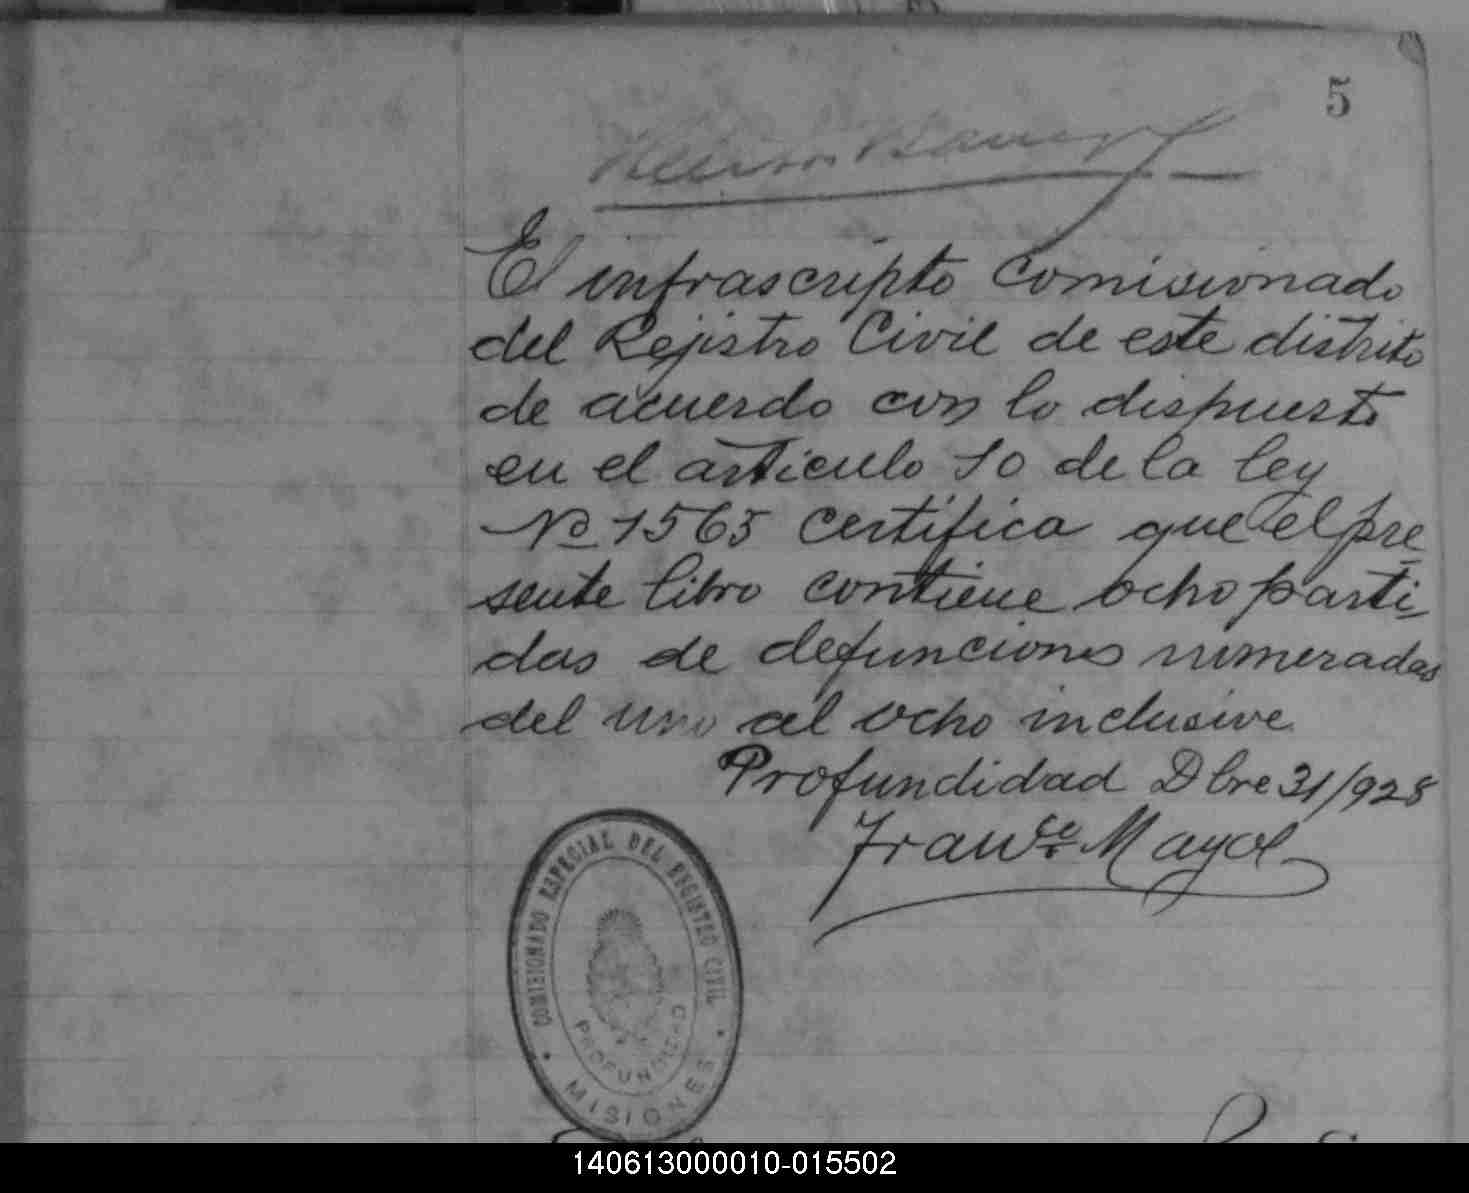 5
El infrascripto Comisionado
del Rejistro Civil de este distrito
de acuerdo con lo dispuesto
en el articulo 10 de la ley
Nº 1565 certifica que el pre
sente libro contiene ocho parti
das de defunciones numeradas
del uno al ocho inclusive
Profundidad Dbre 31/928
Franco Mayol
COMISIONADO ESPECIAL DEL REGISTRO CIVIL
PROFUNDIDAD
MISIONES
140613000010-015502